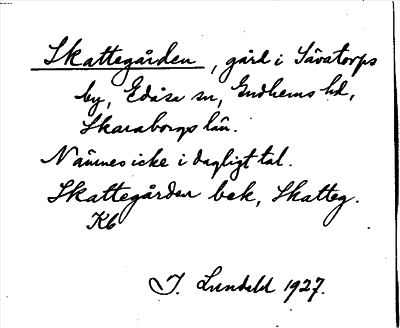 Skattegården, gård i Sävatorps
by, Edåsa sn, Gudhems hd,
Skaraborgs län.
Nämnes icke i dagligt tal.
Skattegården bek, Skatteg.
Kb
J. Lundeld 1927.